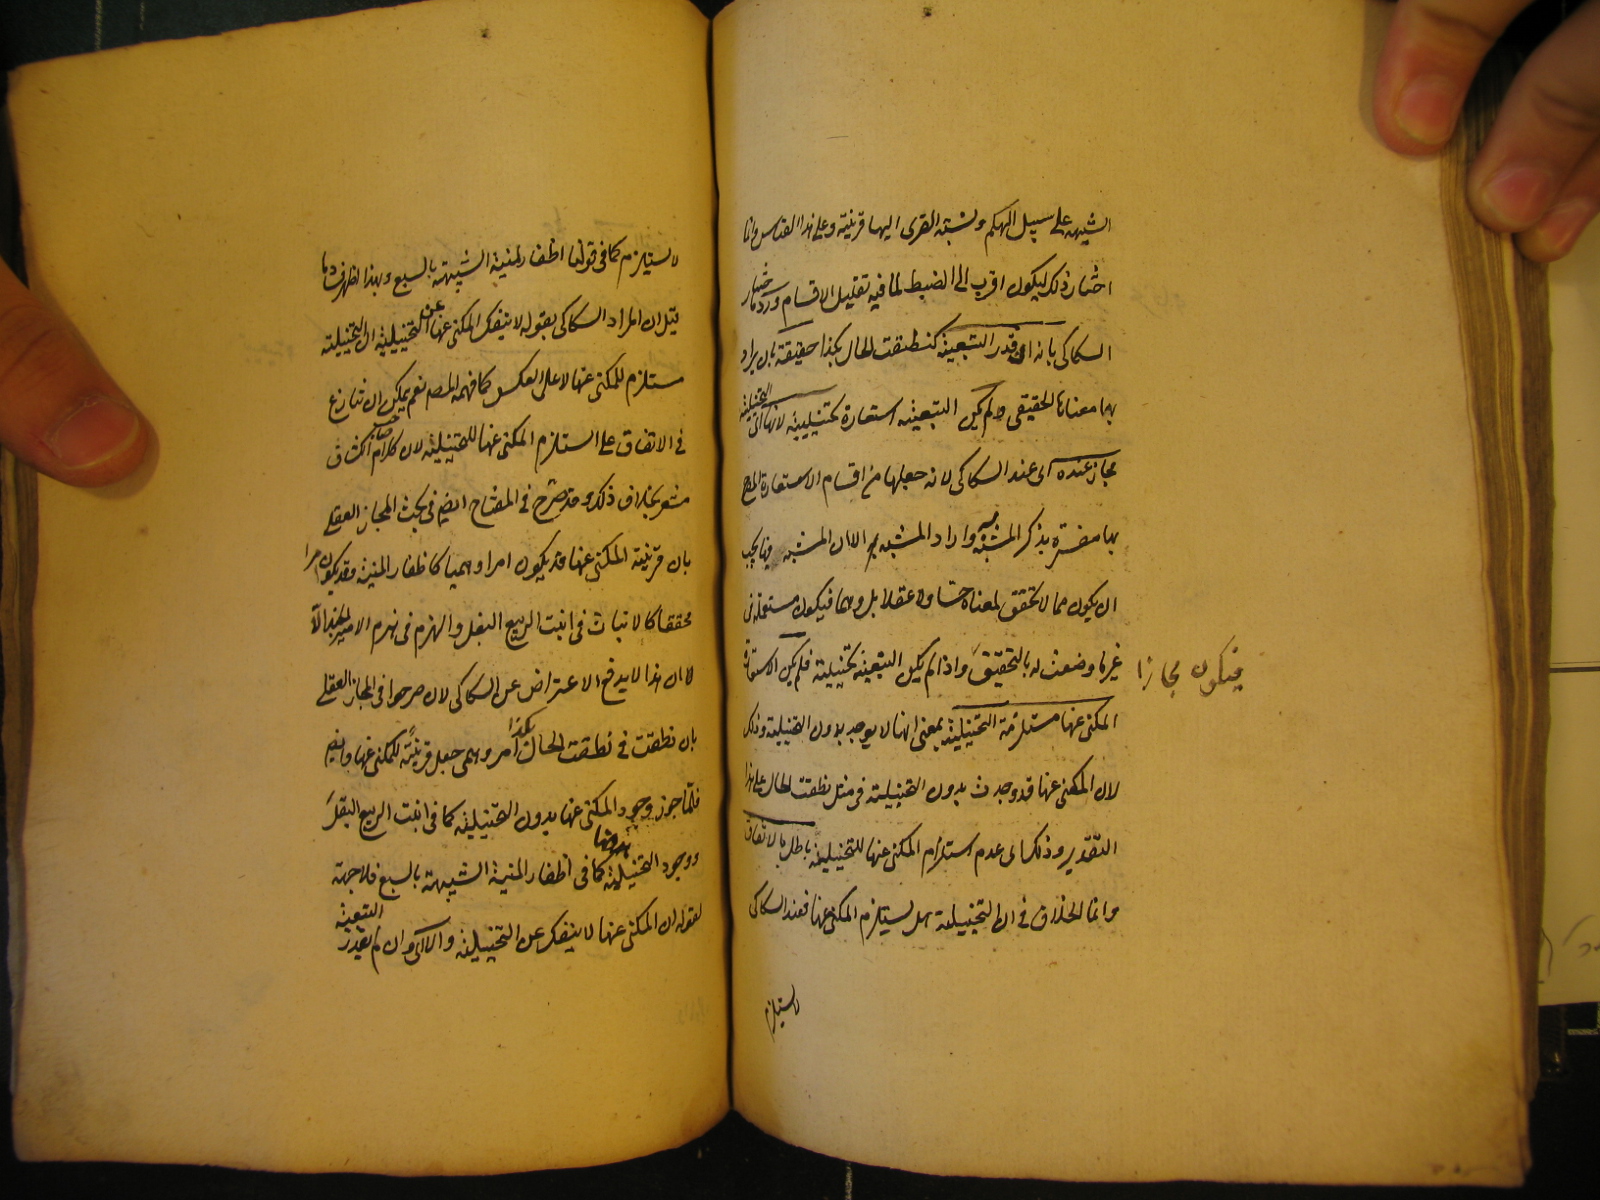 الشبهه على سبيل التهكم ونسبة القرى اليها قرينة وعلى هذا القياس وانما
اختار ذلك ليكون اقرب الى الضبط لما فيه تقليل الاقسام ورد ما اختار
السكاكى بانه ان قدر التبعية كنطقت الحال بكذا حقيقة بان يراد
بها معناها الحقيقى ولم يكن التبعية استعارة تخييلية لانها اى التخييلية
مجاز عنده اى عند السكاكى لانه جعلها من اقسام الاستعارة المصرح
بها مفسرة بذكر المشبه به وارادة المشبه الا ان المشبه فيها يجب
ان يكون مما لا تحقق لمعناه حسا ولا عقلا بل وهما فيكون مستعملة فى
غير ما وضعت له بالتحقيق واذا لم يكن التبعية تخييلية فلم يكن الاستعارة
فيكون مجازا
المكنى عنها مستلزمة للتخييلية بمعنى انها لا يوجد بدون التخييلية وذلك
لان المكنى عنها قد وجدت بدون التخييلية فى مثل نطقت الحال على هذا
التقدير وذلك اى عدم استلزام المكنى عنها للتخييلية باطل بالاتفاق
وانما الخلاف فى ان التخييلية هل يستلزم المكنى عنها فعند السكاكى
لا يستلزم
لا يستلزم كما فى قولنا اظفار المنية الشبيهة بالسبع وبهذا ظهر فساد ما
قيل ان المراد السكاكى بقوله لا ينفك المكنى عنها عن التخييلية ان التخييلية
مستلزم للمكنى عنها لا على العكس كما فهمه المص نعم يمكن ان ينازع
فى الاتفاق على استلزام المكنى عنها للتخييلية لان كلام صاحب الكشاف
مشعر بخلاف ذلك وقد صرح فى المفتاح ايضا فى بحث المجاز العقلى
بان قرينة المكنى عنها قد يكون امرا وهميا كاظفار المنية وقد يكون امرا
محققا كالانبات فى انبت الربيع البقل والهزم فى هزم الامير الجند الا
لا ان هذا لا يدفع الاعتراض عن السكاكى لان صرحوا فى المجاز العقلى
بان نطقت فى نطقت الحال بكذا امر وهمى جعل قرينة للمكنى عنها وايضا
فلما جوز وجود المكنى عنها بدون التخييلية كما فى انبت الربيع البقل
ووجود التخييلية بدونها كما فى اظفار المنية الشبيهة بالسبع فلا جهة
لقوله ان المكنى عنها لا ينفك عن التخييلية والا اى وان لم يقدر التبعية